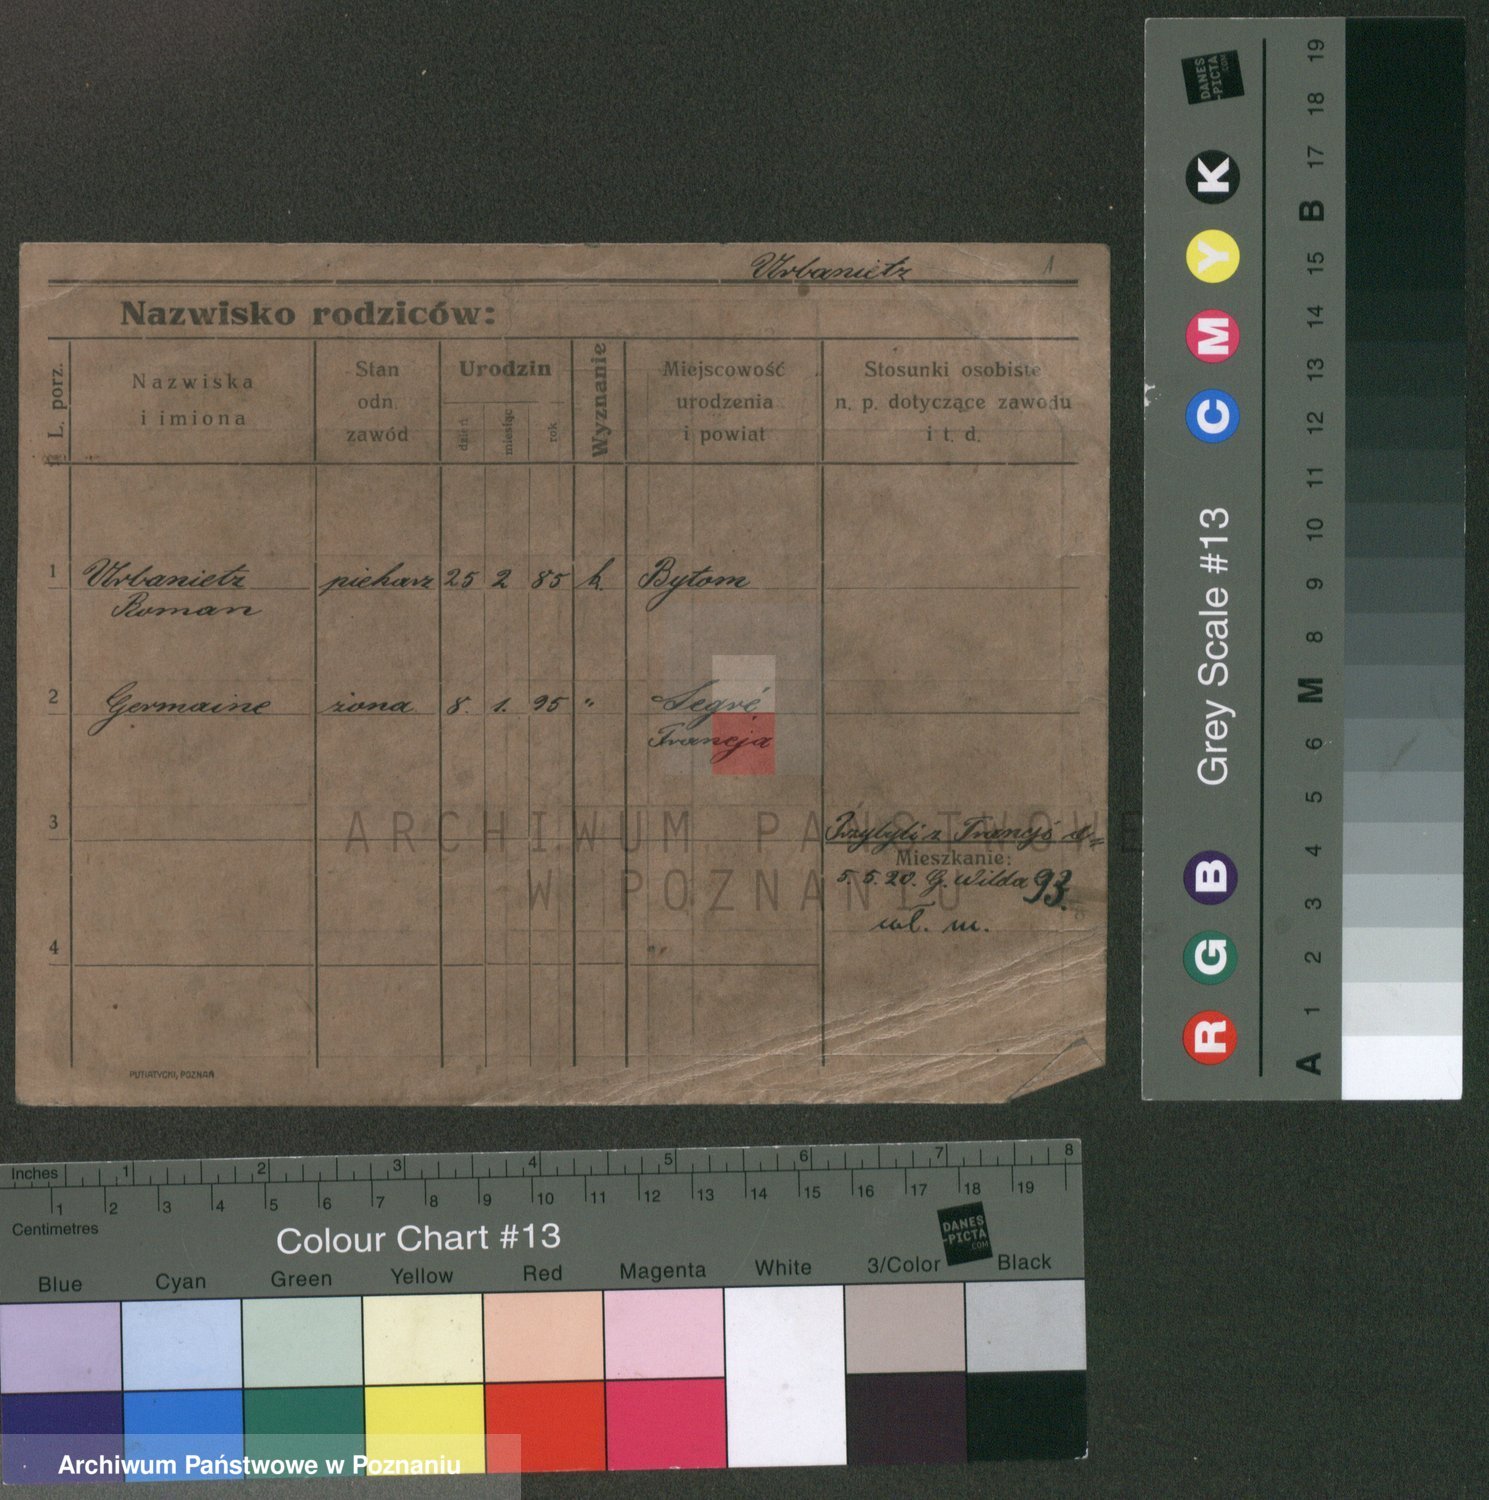 Urbanietz 1
Nazwisko rodziców:
L. porz.
Nazwiska
i imiona
Stan
odn.
zawód
Urodzin
dzień
miesiąc
rok
Wyznanie
Miejscowość
urodzenia
i powiat
Stosunki osobiste
n. p. dotyczące zawodu
i t. d.
1 Urbanietz piekarz 25 2 85 k. Bytom
Roman
2 Germaine żona 8. 1. 95 " Segré
Francja
3
Przybyli z Francji
Mieszkanie:
5. 5. 20. G. Wilda 93.
wł. m.
4
PUTIATYCKI, POZNAŃ
ARCHIWUM PAŃSTWOWE
W POZNANIU
Grey Scale #13
R G B C M Y K
A 1 2 3 4 5 6 M 8 9 10 11 12 13 14 15 B 17 18 19
DANES
-PICTA
.COM
Inches 1 2 3 4 5 6 7 8
1 2 3 4 5 6 7 8 9 10 11 12 13 14 15 16 17 18 19
Centimetres
Colour Chart #13
DANES
-PICTA
.COM
Blue Cyan Green Yellow Red Magenta White 3/Color Black
Archiwum Państwowe w Poznaniu